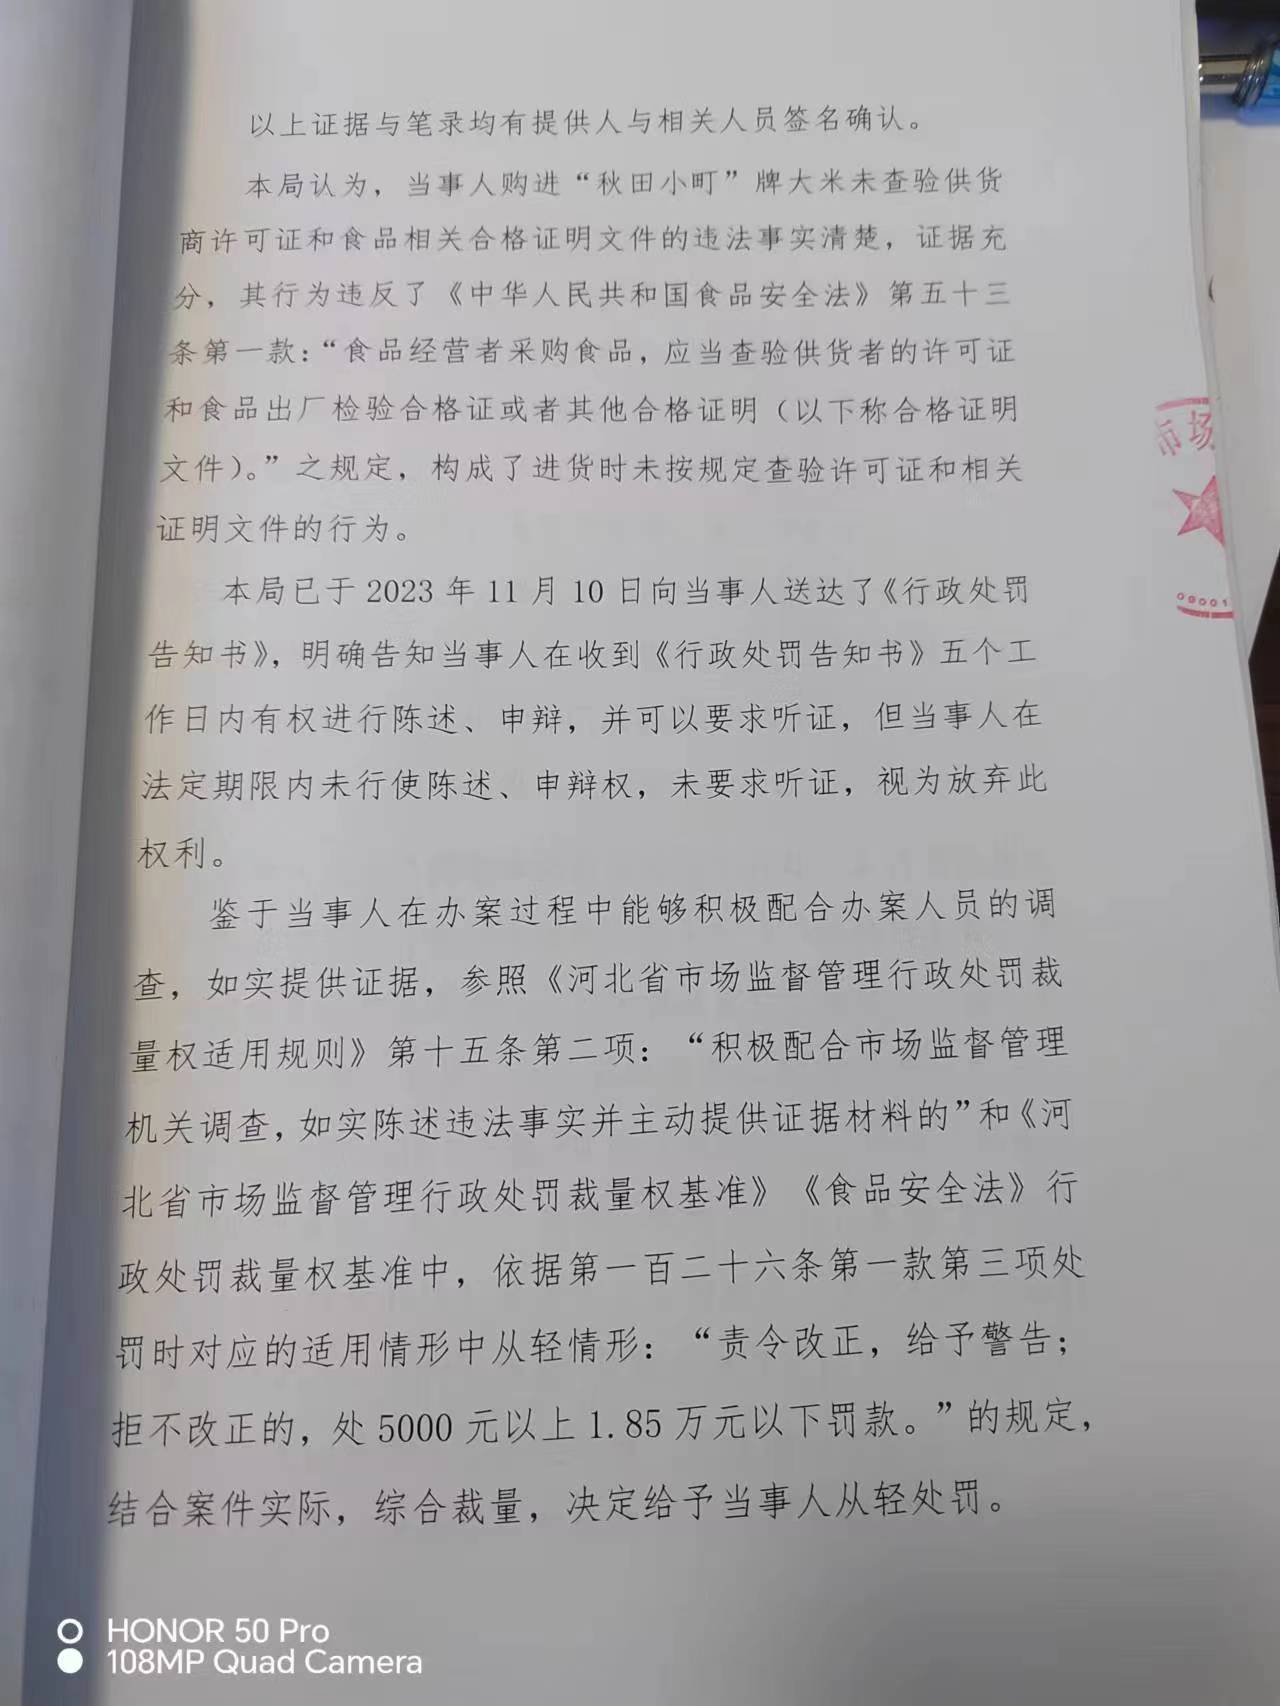 以上证据与笔录均有提供人与相关人员签名确认。
本局认为，当事人购进“秋田小町”牌大米未查验供货
商许可证和食品相关合格证明文件的违法事实清楚，证据充
分，其行为违反了《中华人民共和国食品安全法》第五十三
条第一款：“食品经营者采购食品，应当查验供货者的许可证
和食品出厂检验合格证或者其他合格证明（以下称合格证明
文件）。”之规定，构成了进货时未按规定查验许可证和相关
证明文件的行为。
本局已于2023年11月10日向当事人送达了《行政处罚
告知书》，明确告知当事人在收到《行政处罚告知书》五个工
作日内有权进行陈述、申辩，并可以要求听证，但当事人在
法定期限内未行使陈述、申辩权，未要求听证，视为放弃此
权利。
鉴于当事人在办案过程中能够积极配合办案人员的调
查，如实提供证据，参照《河北省市场监督管理行政处罚裁
量权适用规则》第十五条第二项：“积极配合市场监督管理
机关调查，如实陈述违法事实并主动提供证据材料的”和《河
北省市场监督管理行政处罚裁量权基准》《食品安全法》行
政处罚裁量权基准中，依据第一百二十六条第一款第三项处
罚时对应的适用情形中从轻情形：“责令改正，给予警告；
拒不改正的，处5000元以上1.85万元以下罚款。”的规定，
结合案件实际，综合裁量，决定给予当事人从轻处罚。
市场
HONOR 50 Pro
108MP Quad Camera